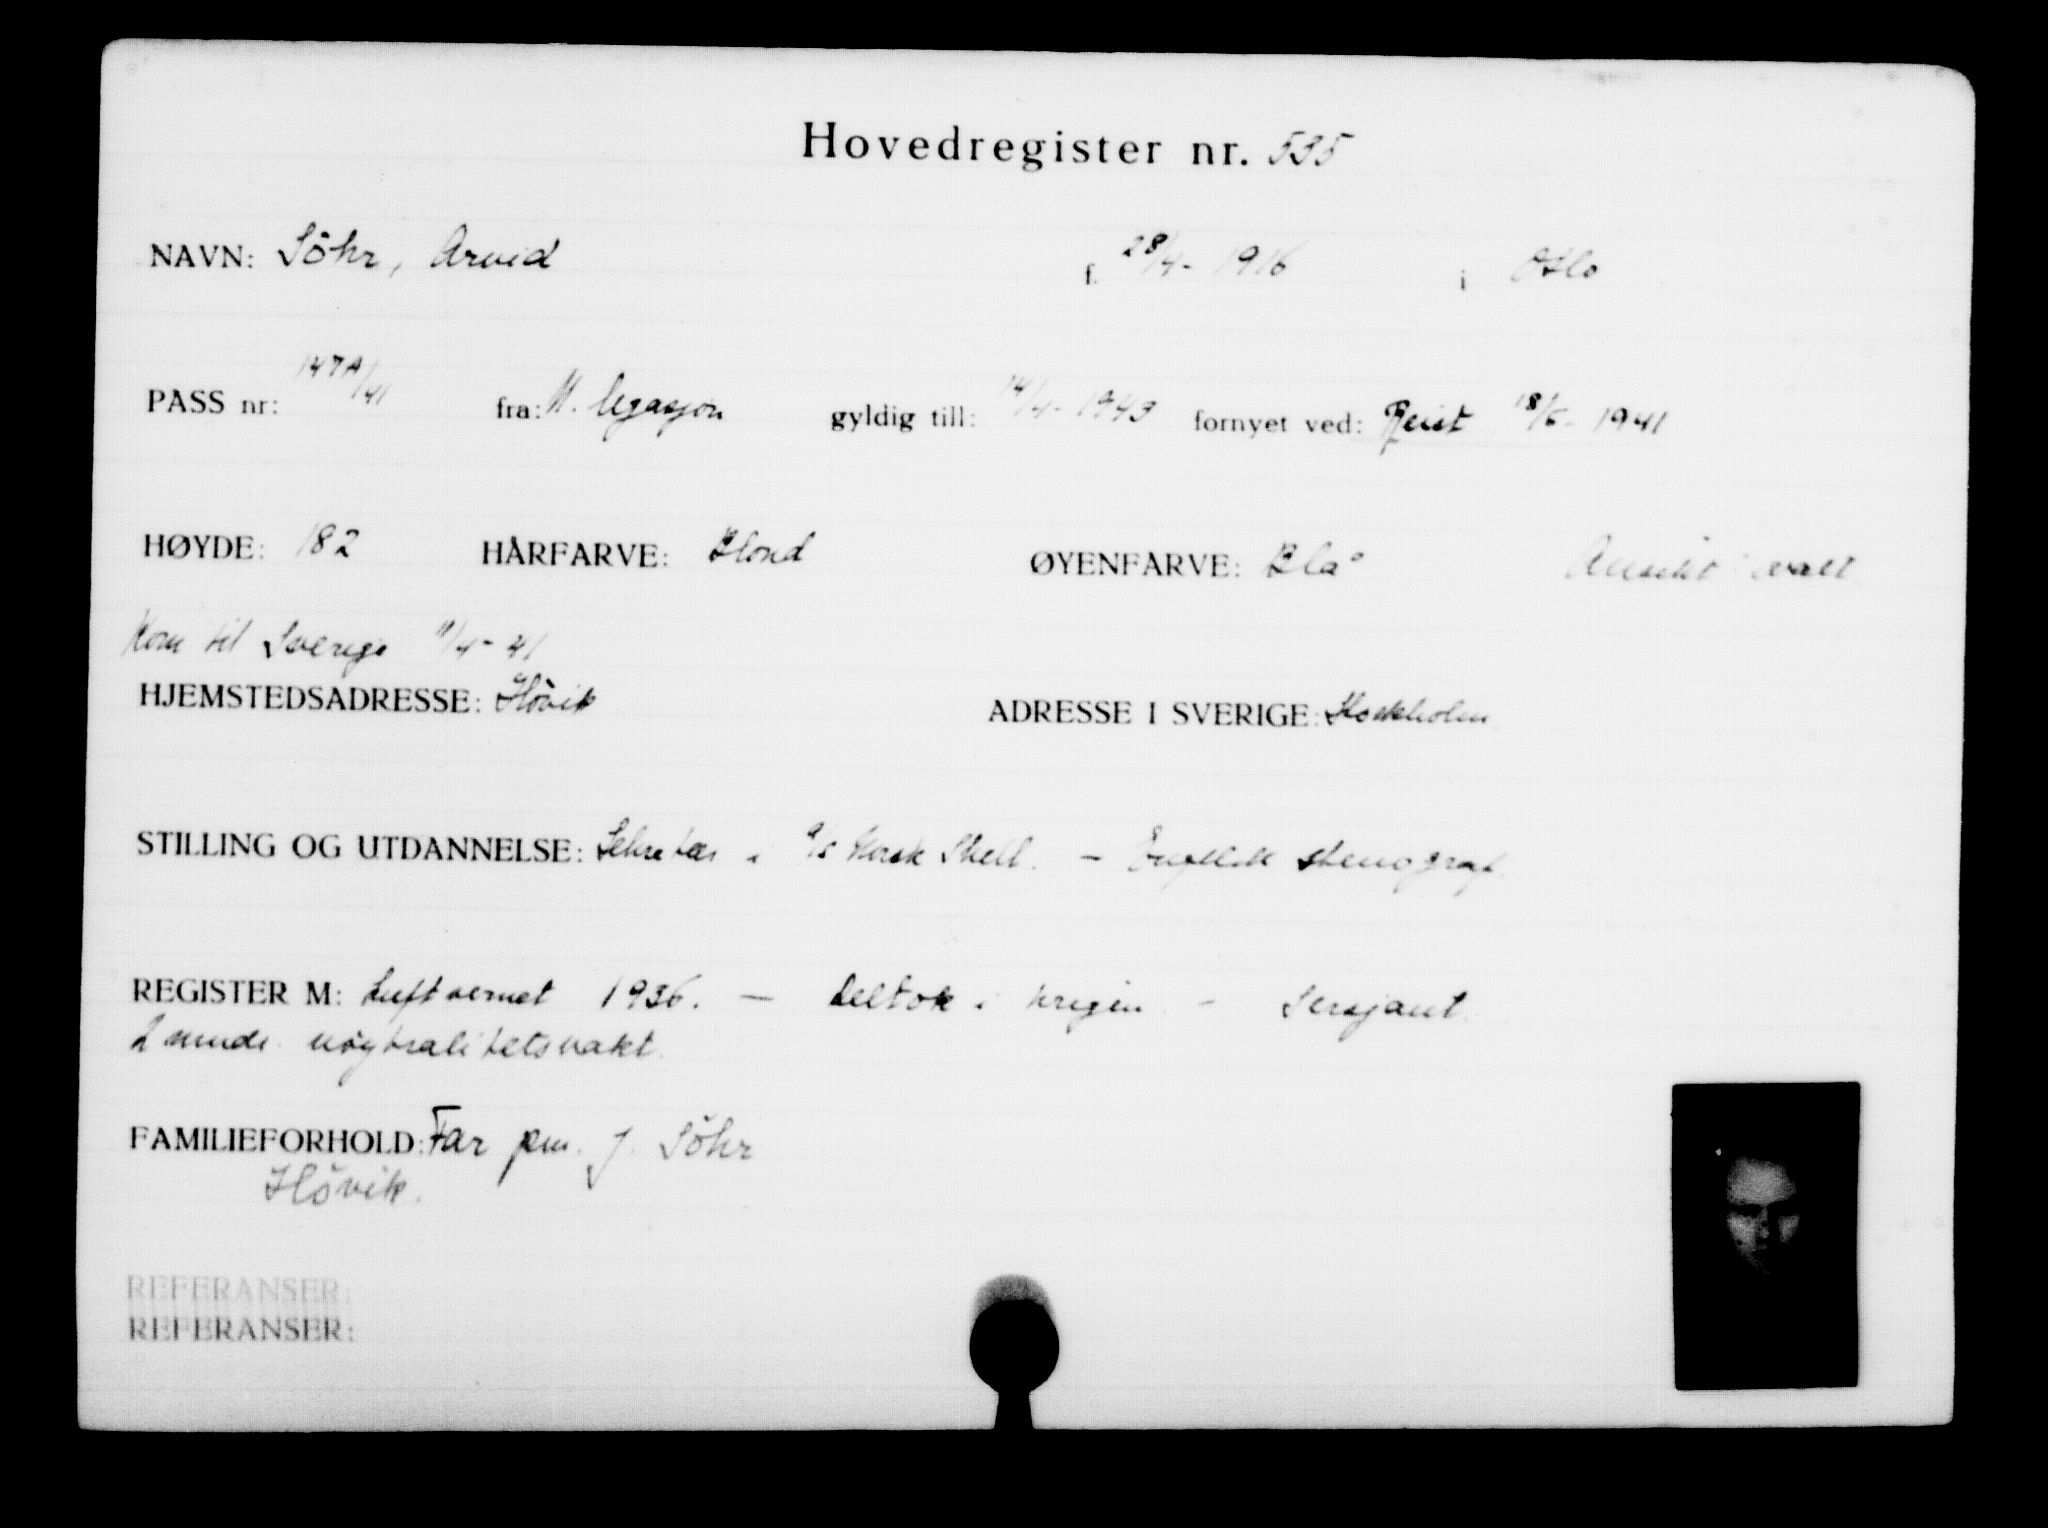 Hovedregister nr. 535
NAVN: Söhr, Arvid f. 28/4- 1916 i Oslo
PASS nr: 147A/41 fra: N. legasjon gyldig till: 14/4- 1943 fornyet ved: Reist 18/6- 1941
HØYDE: 182 HÅRFARVE: Blond ØYENFARVE: Blå Ansikt: ovalt
Kom til Sverige 11/4- 41
HJEMSTEDSADRESSE: Hövik ADRESSE I SVERIGE: Stockholm
STILLING OG UTDANNELSE: Sekretær i A/S Norsk Shell. - Engelsk stenograf.
REGISTER M: Luftvernet 1936. - Deltok i krigen - Sersjant.
2 mndr. nøytralitetsvakt.
FAMILIEFORHOLD: Far J. Söhr
Hövik.
REFERANSER:
REFERANSER: